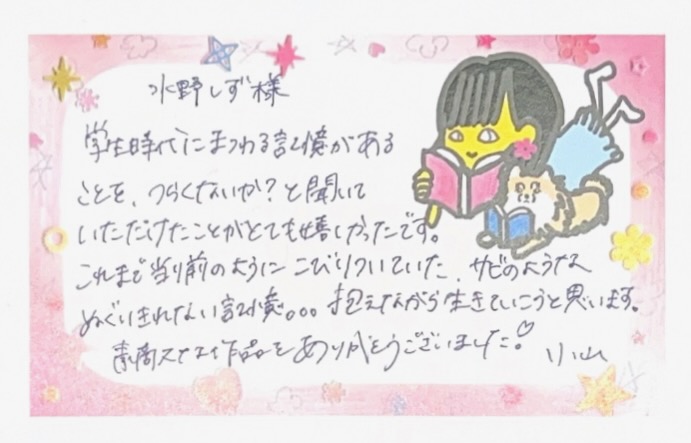 水野しず様
学生時代にまつわる記憶がある
ことを、つらくないか？と聞いて
いただけたことがとても嬉しかったです。
これまで当り前のように こびりついていた、サビのような
ぬぐいきれない記憶。。。抱えながら生きていこうと思います。
素敵な作品をありがとうございました！♡
小山